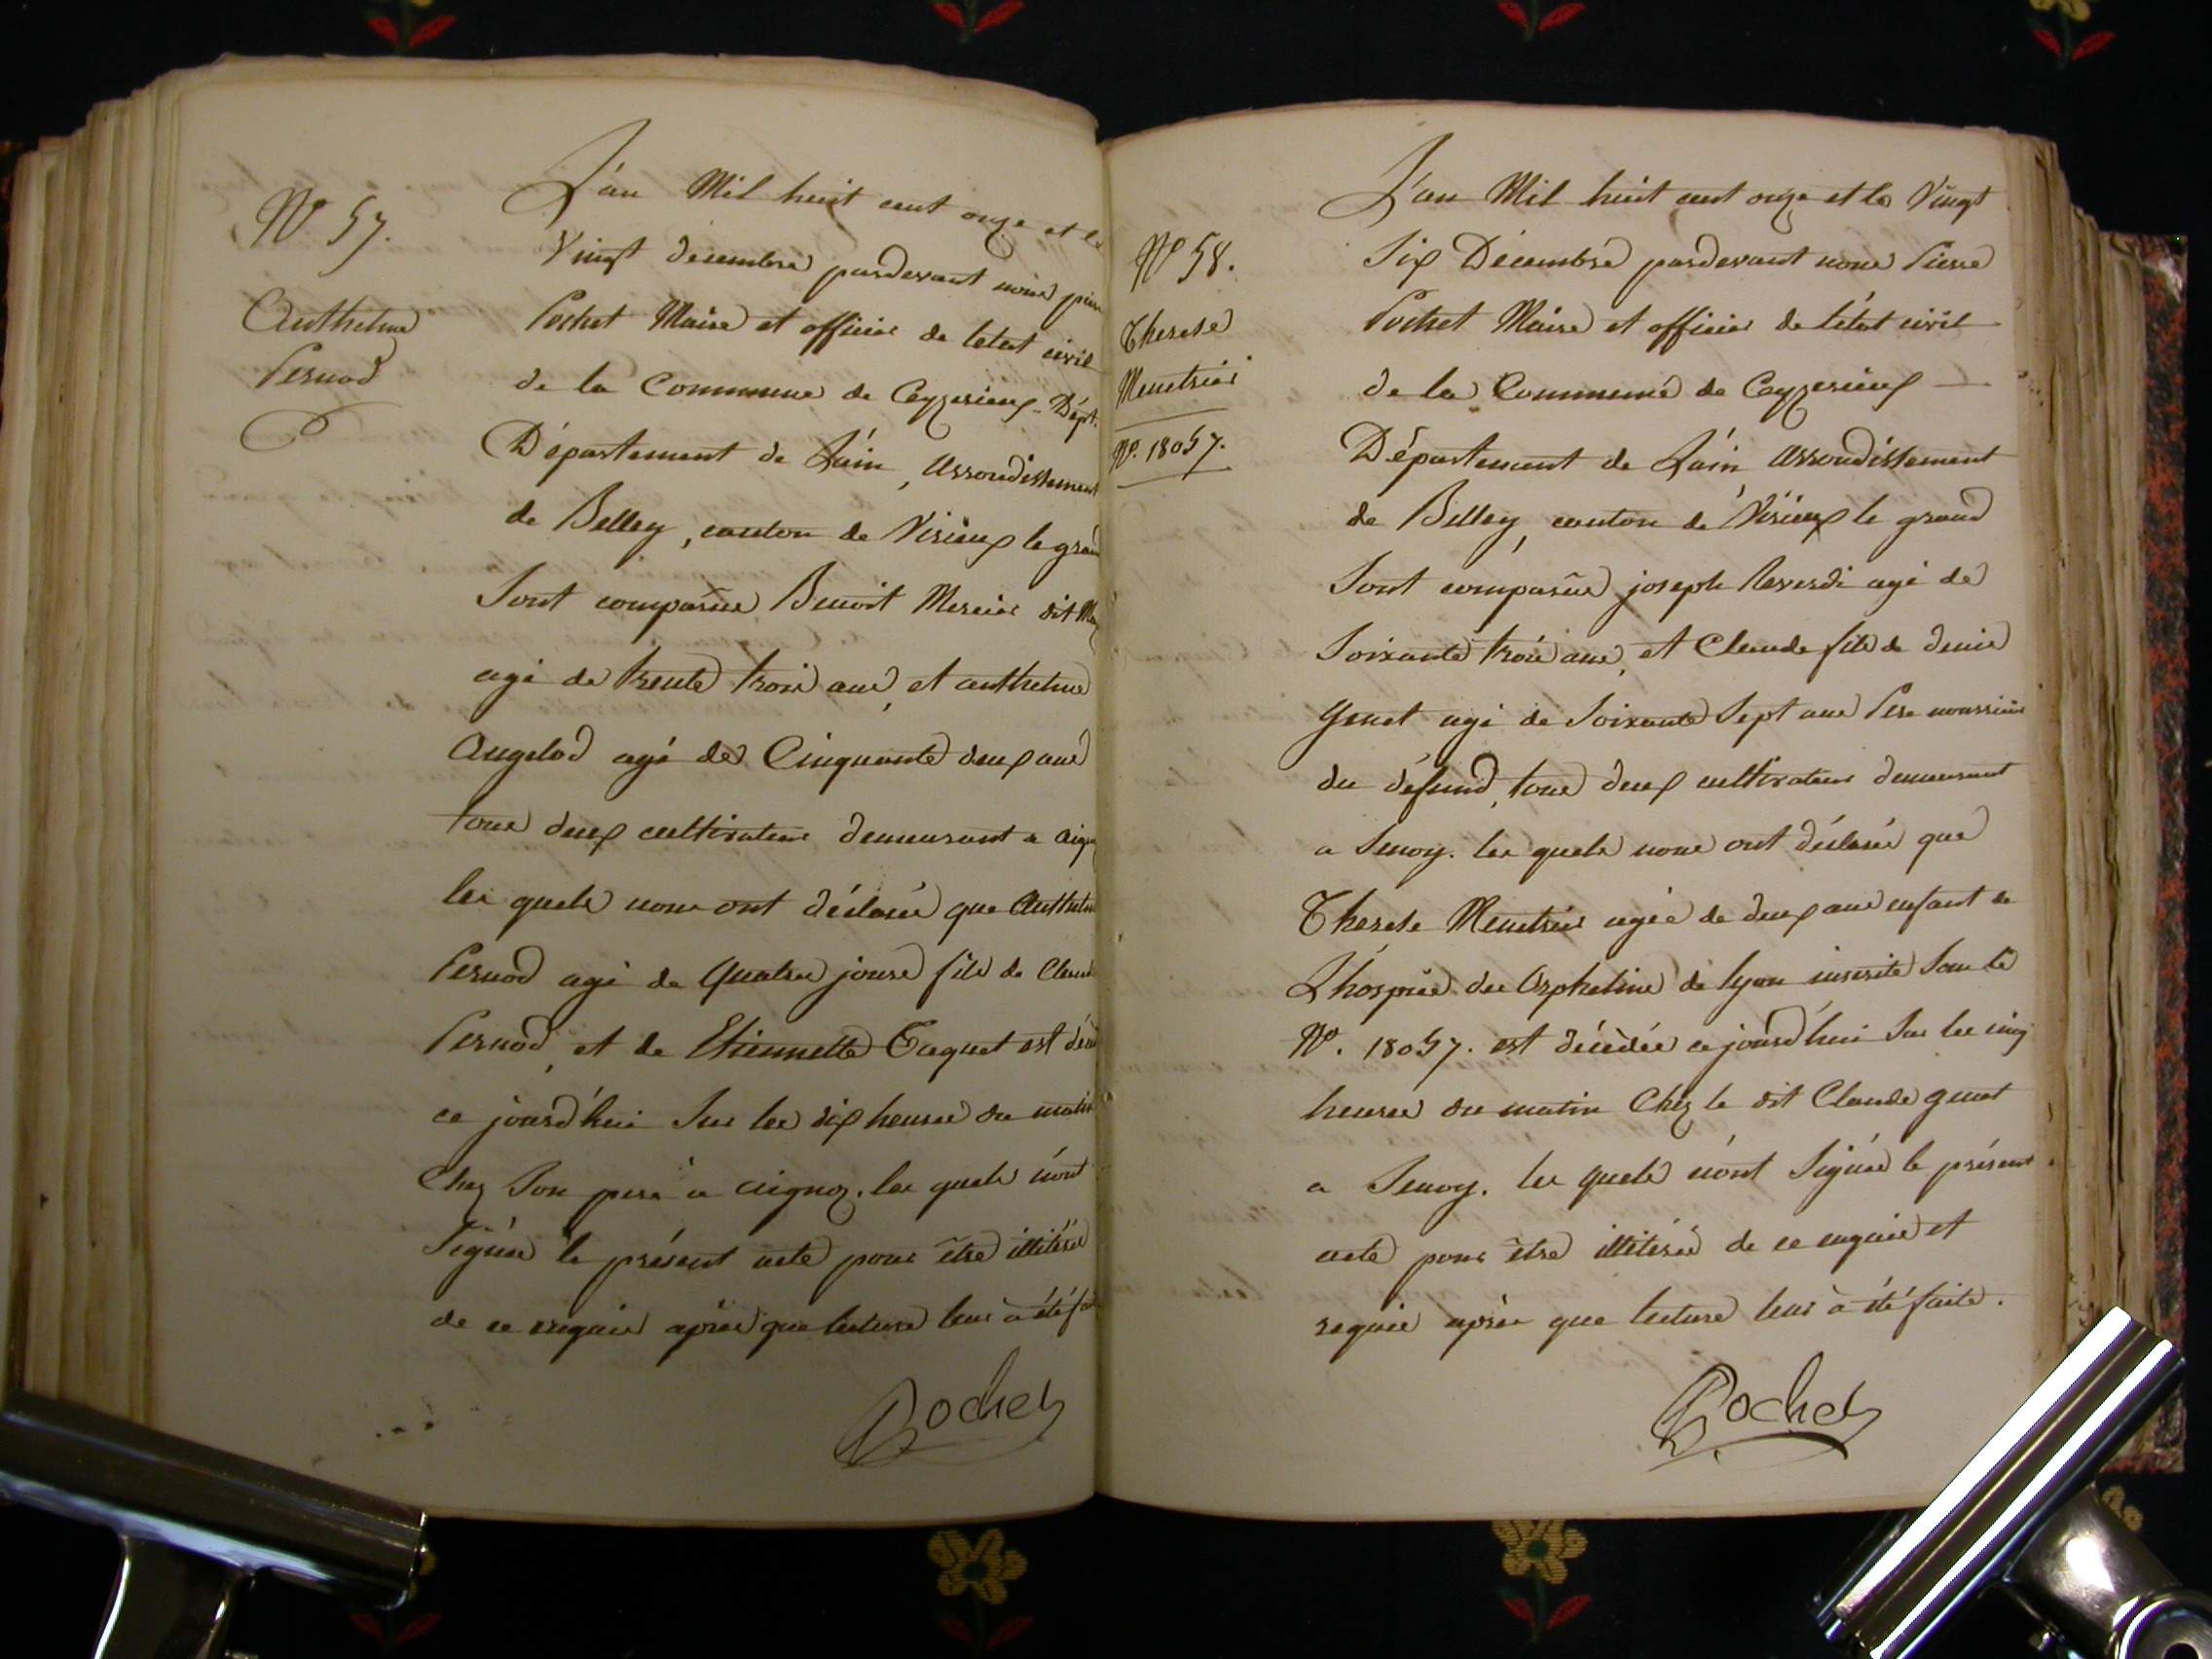 N° 57.
Anthelme
Pernod
L'an Mil huit cent onze et le
Vingt décembre pardevant nous
Pochet Maire et officier de letat civil
de la Commune de Ceyzerieux Dépt.
Département de L'ain, Arrondissement
de Belley, canton de Virieux le grand
Sont comparus Benoit Mercier dit
agé de trente trois ans, et anthelme
Angelod agé de Cinquante deux ans
tous deux cultivateurs demeurant a
les quels nous ont déclarés que Anthelme
Pernod agé de Quatre jours fils de Claude
Pernod, et de Etiennette Taquet est
ce jourd'hui Sur les dix heures du matin
Chez Son pere à aignoz. les quels n'ont
Signés le présent acte pour être illitérés
de ce enquis après que lecture leur à été
Pochet
N° 58.
Therese
Menetrier
N°. 18057.
L'an Mil huit cent onze et le Vingt
Six Décembre pardevant nous Pierre
Pochet Maire et officier de l'état civil
de la Commune de Ceyzerieux
Département de L'ain, Arrondissement
de Belley, canton de Virieux le grand
Sont comparus joseph Reverdi agé de
Soixante trois ans, et Claude fils de denis
Genet agé de Soixante Sept ans Pere nourricier
du défund, tous deux cultivateurs demeurant
a Senoy. les quels nous ont déclarés que
Therese Menetrier agée de deux ans enfant de
L'hospice des Orphelins de lyon inscrite Sous le
N°. 18057. est décédée ce jourd'hui Sur les cinq
heures du matin Chez le dit Claude genet
a Senoy. les quels n'ont Signés le présent
acte pour être illitérés de ce enquis et
requis après que lecture leur à été faite.
Pochet